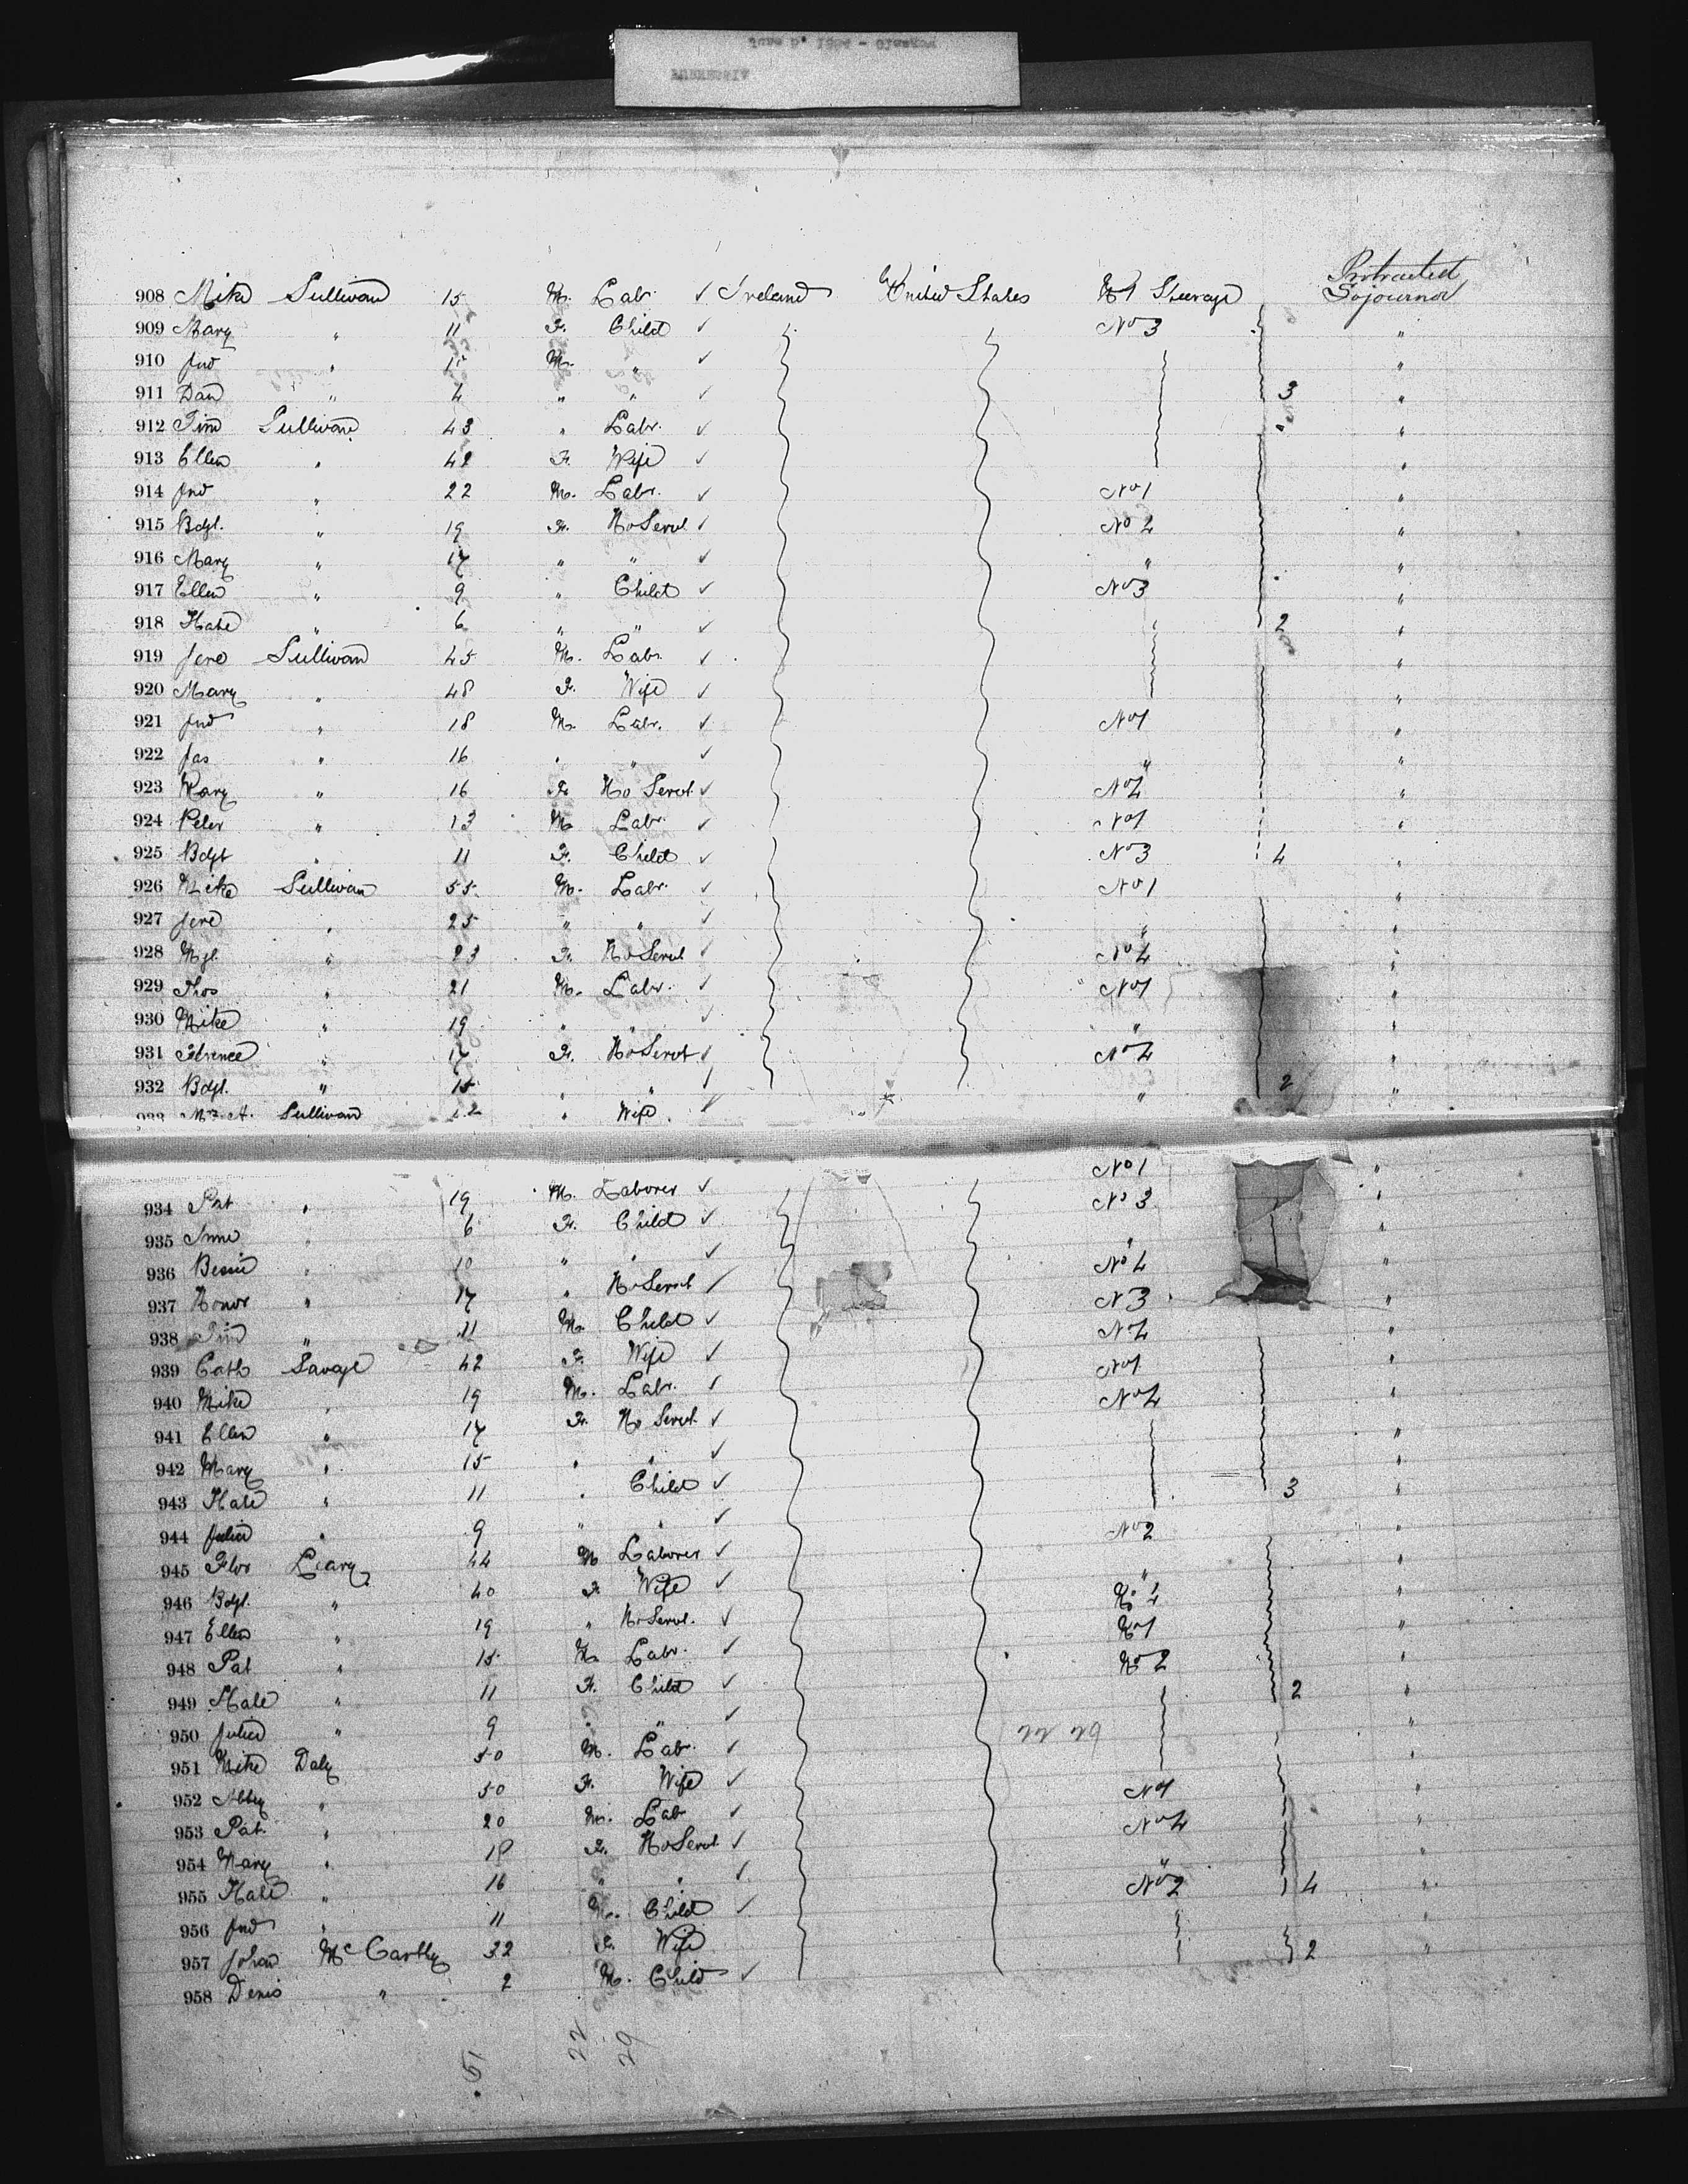 Protracted
908 Mike Sullivan 15 M. Labr. ✓ Ireland United States No 1 Steerage Sojourner
909 Mary " 11 F. Child ✓ No 3 "
910 Jno " M. " ✓ "
911 Dan " 4 " " ✓ 3 "
912 Tim Sullivan 43 " Labr. ✓ "
913 Ellen " 42 F. Wife ✓ "
914 Jno " 22 M. Labr. ✓ No 1 "
915 Bdgt. " 19 F. Ho Servt ✓ No 4 "
916 Mary " 17 " " ✓ " "
917 Ellen " 9 " Child ✓ No 3 "
918 Kate " 6 " " ✓ 2 "
919 Jere Sullivan 45 M. Labr. ✓ "
920 Mary " 48 F. Wife ✓ "
921 Jno " 18 M. Labr. ✓ No 1 "
922 Jas " 16 " " ✓ " "
923 Mary " 16 F. Ho Servt ✓ No 4 "
924 Peter " 13 M. Labr. ✓ No 1 "
925 Bdgt " 11 F. Child ✓ No 3 4 "
926 Mike Sullivan 55 M. Labr. ✓ No 1 "
927 Jere " 25 " " ✓ " "
928 Mgt. " 23 F. Ho Servt ✓ No 4 "
929 Thos " 21 M. Labr. ✓ No 1 "
930 Mike " 19 " " ✓ " "
931 Florence " 17 F. Ho Servt ✓ No 4 "
932 Bdgt. " 15 " " ✓ " 2 "
933 Mrs A. Sullivan " Wife ✓
934 Pat " 19 M. Laborer ✓ No 1 "
935 " 6 F. Child ✓ No 3 "
936 Bessie " 10 " " ✓ " "
937 Honor " 17 " Ho Servt ✓ No 4 "
938 Tim " 11 M. Child ✓ No 3 "
939 Cath Savage 42 F. Wife ✓ No 4 "
940 Mike " 19 M. Labr. ✓ No 1 "
941 Ellen " 17 F. Ho Servt ✓ No 4 "
942 Mary " 15 " " ✓ "
943 Kate " 11 " Child ✓ 3 "
944 Julia " 9 " " ✓ "
945 Flor Leary 44 M Laborer ✓ No 2 "
946 Bdgt. " 40 F. Wife ✓ " "
947 Ellen " 19 " Ho Servt. ✓ No 4 "
948 Pat " 15 M Labr. ✓ No 1 "
949 Kate " 11 F. Child ✓ No 2 2 "
950 Julia " 9 " " ✓ 22 29 "
951 Mike Daly 50 M. Labr. ✓ "
952 Abbey " 50 F. Wife ✓ "
953 Pat " 20 M. Labr ✓ No 1 "
954 Mary " 18 F. Ho Servt ✓ No 4 "
955 Kate " 16 " " ✓ " "
956 Jno " 11 M. Child ✓ No 2 4 "
957 Johan McCarthy 32 F. Wife "
958 Denis " 2 M. Child ✓ 2 "
51 22 29